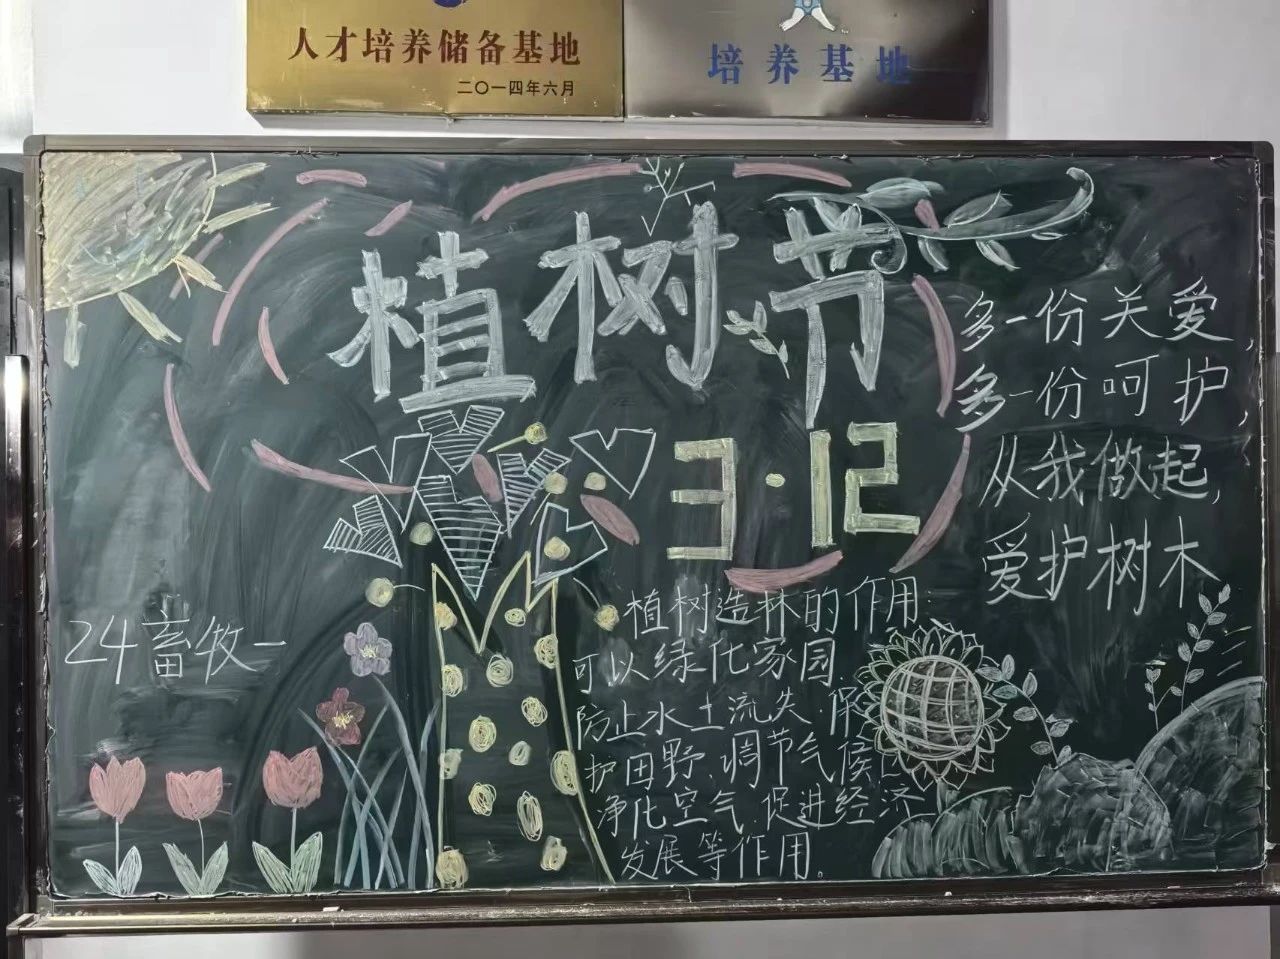 人才培养储备基地
二〇一四年六月
培养基地
植树节
3·12
多一份关爱,
多一份呵护,
从我做起,
爱护树木
24畜牧一
植树造林的作用:
可以绿化家园、
防止水土流失、保
护田野、调节气候、
净化空气、促进经济
发展等作用。